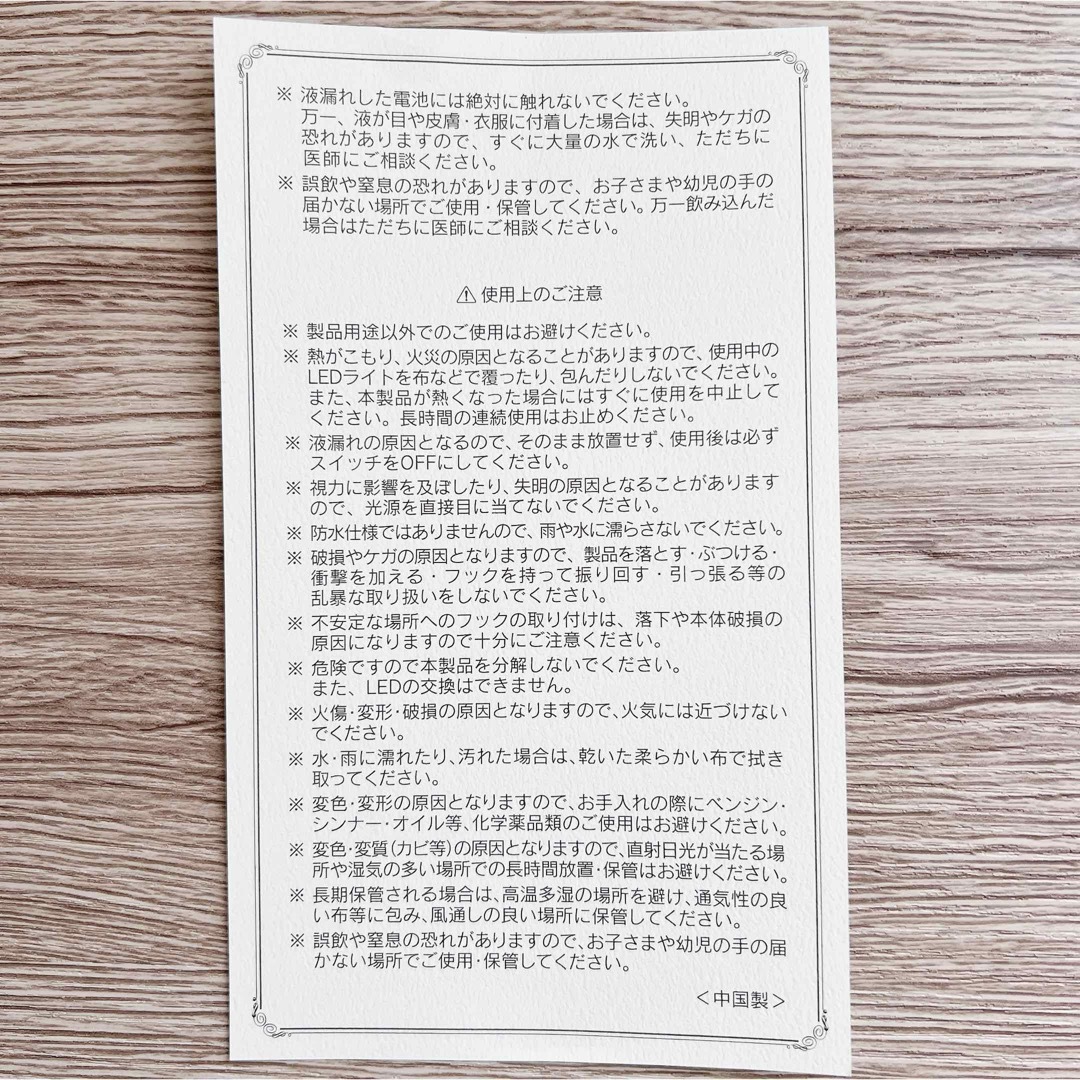 ※ 液漏れした電池には絶対に触れないでください。
万一、液が目や皮膚・衣服に付着した場合は、失明やケガの
恐れがありますので、すぐに大量の水で洗い、ただちに
医師にご相談ください。
※ 誤飲や窒息の恐れがありますので、お子さまや幼児の手の
届かない場所でご使用・保管してください。万一飲み込んだ
場合はただちに医師にご相談ください。
⚠ 使用上のご注意
※ 製品用途以外でのご使用はお避けください。
※ 熱がこもり、火災の原因となることがありますので、使用中の
LEDライトを布などで覆ったり、包んだりしないでください。
また、本製品が熱くなった場合にはすぐに使用を中止して
ください。長時間の連続使用はお止めください。
※ 液漏れの原因となるので、そのまま放置せず、使用後は必ず
スイッチをOFFにしてください。
※ 視力に影響を及ぼしたり、失明の原因となることがあります
ので、光源を直接目に当てないでください。
※ 防水仕様ではありませんので、雨や水に濡らさないでください。
※ 破損やケガの原因となりますので、製品を落とす・ぶつける・
衝撃を加える・フックを持って振り回す・引っ張る等の
乱暴な取り扱いをしないでください。
※ 不安定な場所へのフックの取り付けは、落下や本体破損の
原因になりますので十分にご注意ください。
※ 危険ですので本製品を分解しないでください。
また、LEDの交換はできません。
※ 火傷・変形・破損の原因となりますので、火気には近づけない
でください。
※ 水・雨に濡れたり、汚れた場合は、乾いた柔らかい布で拭き
取ってください。
※ 変色・変形の原因となりますので、お手入れの際にベンジン・
シンナー・オイル等、化学薬品類のご使用はお避けください。
※ 変色・変質(カビ等)の原因となりますので、直射日光が当たる場
所や湿気の多い場所での長時間放置・保管はお避けください。
※ 長期保管される場合は、高温多湿の場所を避け、通気性の良
い布等に包み、風通しの良い場所に保管してください。
※ 誤飲や窒息の恐れがありますので、お子さまや幼児の手の届
かない場所でご使用・保管してください。
＜中国製＞